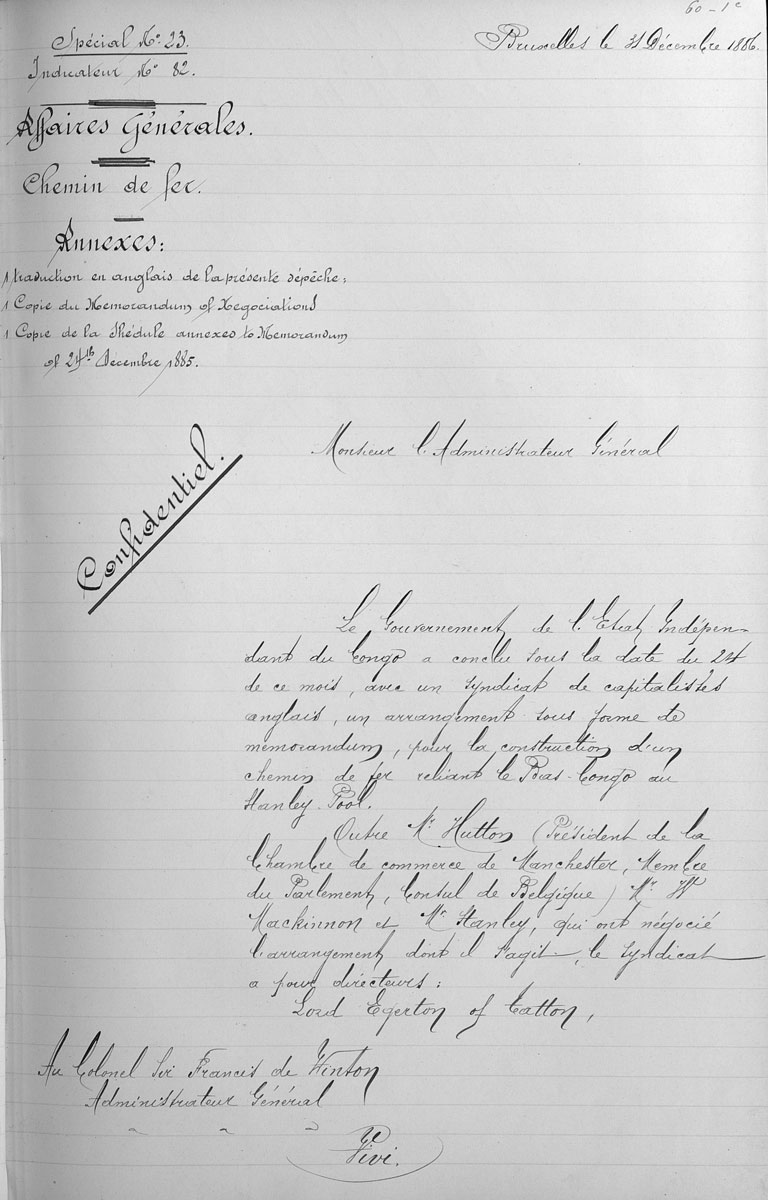 60 - 1c
Spécial No. 23.
Indicateur No 82.
Bruxelles le 31 Décembre 1886.
Affaires Générales.
Chemin de fer.
Annexes:
1 traduction en anglais de la présente dépêche;
1 Copie du Memorandum of Negociations
1 Copie de la Shédule annexes to Memorandum
of 24th Decembre 1885.
Confidentiel.
Monsieur l'Administrateur Général
Le Gouvernement de l'Etat Indépen-
dant du Congo a conclu sous la date du 24
de ce mois, avec un syndicat de capitalistes
anglais, un arrangement sous forme de
memorandum, pour la construction d'un
chemin de fer reliant le Bas-Congo au
Stanley-Pool.
Outre Mr. Hutton (Président de la
Chambre de commerce de Manchester, Membre
du Parlement, Consul de Belgique) Mr. W
Mackinnon et Mr Stanley, qui ont négocié
l'arrangement dont il s'agit, le syndicat
a pour directeurs:
Lord Egerton of Tatton,
Au Colonel Sir Francis de Winton
Administrateur Général
Vivi.